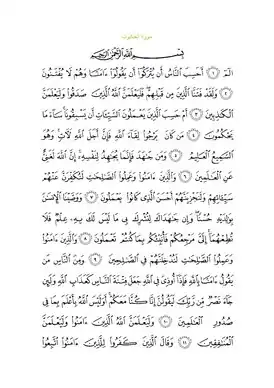 سورة العنكبوت
بِسْمِ اللَّهِ الرَّحْمَٰنِ الرَّحِيمِ
الٓمٓ ١ أَحَسِبَ ٱلنَّاسُ أَن يُتْرَكُوٓا۟ أَن يَقُولُوٓا۟ ءَامَنَّا وَهُمْ لَا يُفْتَنُونَ
٢ وَلَقَدْ فَتَنَّا ٱلَّذِينَ مِن قَبْلِهِمْ فَلَيَعْلَمَنَّ ٱللَّهُ ٱلَّذِينَ صَدَقُوا۟ وَلَيَعْلَمَنَّ
ٱلْكَٰذِبِينَ ٣ أَمْ حَسِبَ ٱلَّذِينَ يَعْمَلُونَ ٱلسَّيِّـَٔاتِ أَن يَسْبِقُونَا سَآءَ مَا
يَحْكُمُونَ ٤ مَن كَانَ يَرْجُوا۟ لِقَآءَ ٱللَّهِ فَإِنَّ أَجَلَ ٱللَّهِ لَءَاتٍ وَهُوَ
ٱلسَّمِيعُ ٱلْعَلِيمُ ٥ وَمَن جَٰهَدَ فَإِنَّمَا يُجَٰهِدُ لِنَفْسِهِۦٓ إِنَّ ٱللَّهَ لَغَنِىٌّ
عَنِ ٱلْعَٰلَمِينَ ٦ وَٱلَّذِينَ ءَامَنُوا۟ وَعَمِلُوا۟ ٱلصَّٰلِحَٰتِ لَنُكَفِّرَنَّ عَنْهُمْ
سَيِّـَٔاتِهِمْ وَلَنَجْزِيَنَّهُمْ أَحْسَنَ ٱلَّذِى كَانُوا۟ يَعْمَلُونَ ٧ وَوَصَّيْنَا ٱلْإِنسَٰنَ
بِوَٰلِدَيْهِ حُسْنًا وَإِن جَٰهَدَاكَ لِتُشْرِكَ بِى مَا لَيْسَ لَكَ بِهِۦ عِلْمٌ فَلَا
تُطِعْهُمَآ إِلَىَّ مَرْجِعُكُمْ فَأُنَبِّئُكُم بِمَا كُنتُمْ تَعْمَلُونَ ٨ وَٱلَّذِينَ ءَامَنُوا۟
وَعَمِلُوا۟ ٱلصَّٰلِحَٰتِ لَنُدْخِلَنَّهُمْ فِى ٱلصَّٰلِحِينَ ٩ وَمِنَ ٱلنَّاسِ مَن
يَقُولُ ءَامَنَّا بِٱللَّهِ فَإِذَآ أُوذِىَ فِى ٱللَّهِ جَعَلَ فِتْنَةَ ٱلنَّاسِ كَعَذَابِ ٱللَّهِ وَلَئِن
جَآءَ نَصْرٌ مِّن رَّبِّكَ لَيَقُولُنَّ إِنَّا كُنَّا مَعَكُمْ أَوَلَيْسَ ٱللَّهُ بِأَعْلَمَ بِمَا فِى
صُدُورِ ٱلْعَٰلَمِينَ ١٠ وَلَيَعْلَمَنَّ ٱللَّهُ ٱلَّذِينَ ءَامَنُوا۟ وَلَيَعْلَمَنَّ
ٱلْمُنَٰفِقِينَ ١١ وَقَالَ ٱلَّذِينَ كَفَرُوا۟ لِلَّذِينَ ءَامَنُوا۟ ٱتَّبِعُوا۟